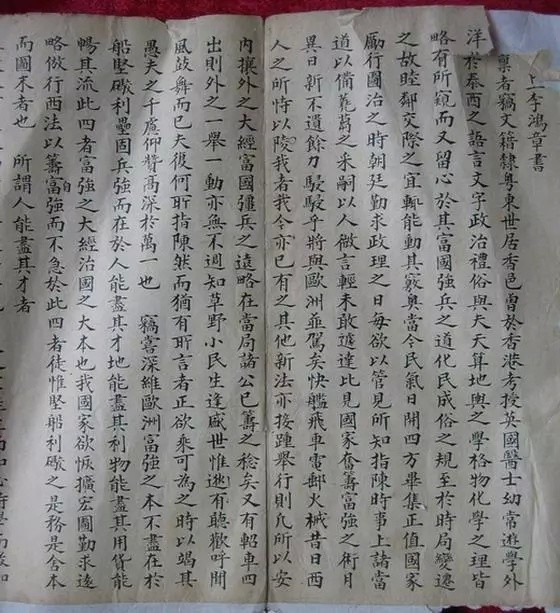 上李鴻章書
稟者竊文籍隸粵東世居香邑曾於香港考授英國醫士幼嘗遊學外
洋於泰西之語言文字政治禮俗與夫天算地輿之學格物化學之理皆
略有所窺而又留心於其富國強兵之道化民成俗之規至於時局變遷
之故睦鄰交際之宜輒能動其竅奧當今民氣日開四方畢集正值國家
勵行國治之時朝廷勤求政理之日每欲以管見所知指陳時事上諸當
道以備蕘蒭之采嗣以人微言輕未敢遽達比見國家奮籌富強之術月
異日新不遺餘力駸駸乎將與歐洲並駕矣快艦飛車電郵火械昔日西
人之所恃以陵我者我今亦已有之其他新法亦接踵舉行則凡所以安
內攘外之大經富國彊兵之遠略在當局諸公已籌之稔矣又有軺車四
出則外之一舉一動亦無不週知草野小民生逢盛世惟逖有聽歡呼聞
風鼓舞而已夫復何所指陳然而猶有所言者正欲乘可為之時以竭其
愚夫之千慮仰贊高深於萬一也 竊嘗深維歐洲富強之本不盡在於
船堅礮利壘固兵強而在於人能盡其才地能盡其利物能盡其用貨能
暢其流此四者富強之大經治國之大本也我國家欲恢擴宏圖勤求遠
略倣行西法以籌自富強而不急於此四者徒惟堅船利礮之是務是舍本
而圖末者也 所謂人能盡其才者